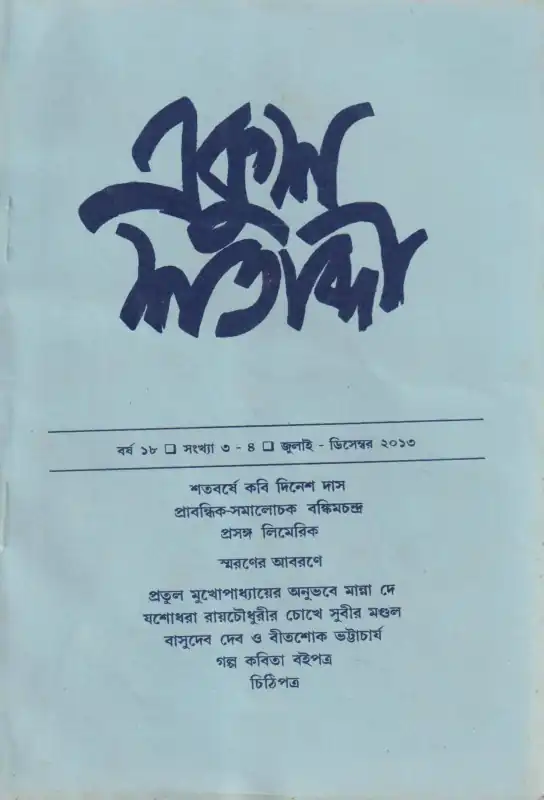 একুশ
শতাব্দী
বর্ষ ১৮ ❑ সংখ্যা ৩ - ৪ ❑ জুলাই - ডিসেম্বর ২০১৩
শতবর্ষে কবি দিনেশ দাস
প্রাবন্ধিক-সমালোচক বঙ্কিমচন্দ্র
প্রসঙ্গ লিমেরিক
স্মরণের আবরণে
প্রতুল মুখোপাধ্যায়ের অনুভবে মান্না দে
যশোধরা রায়চৌধুরীর চোখে সুবীর মণ্ডল
বাসুদেব দেব ও বীতশোক ভট্টাচার্য
গল্প কবিতা বইপত্র
চিঠিপত্র